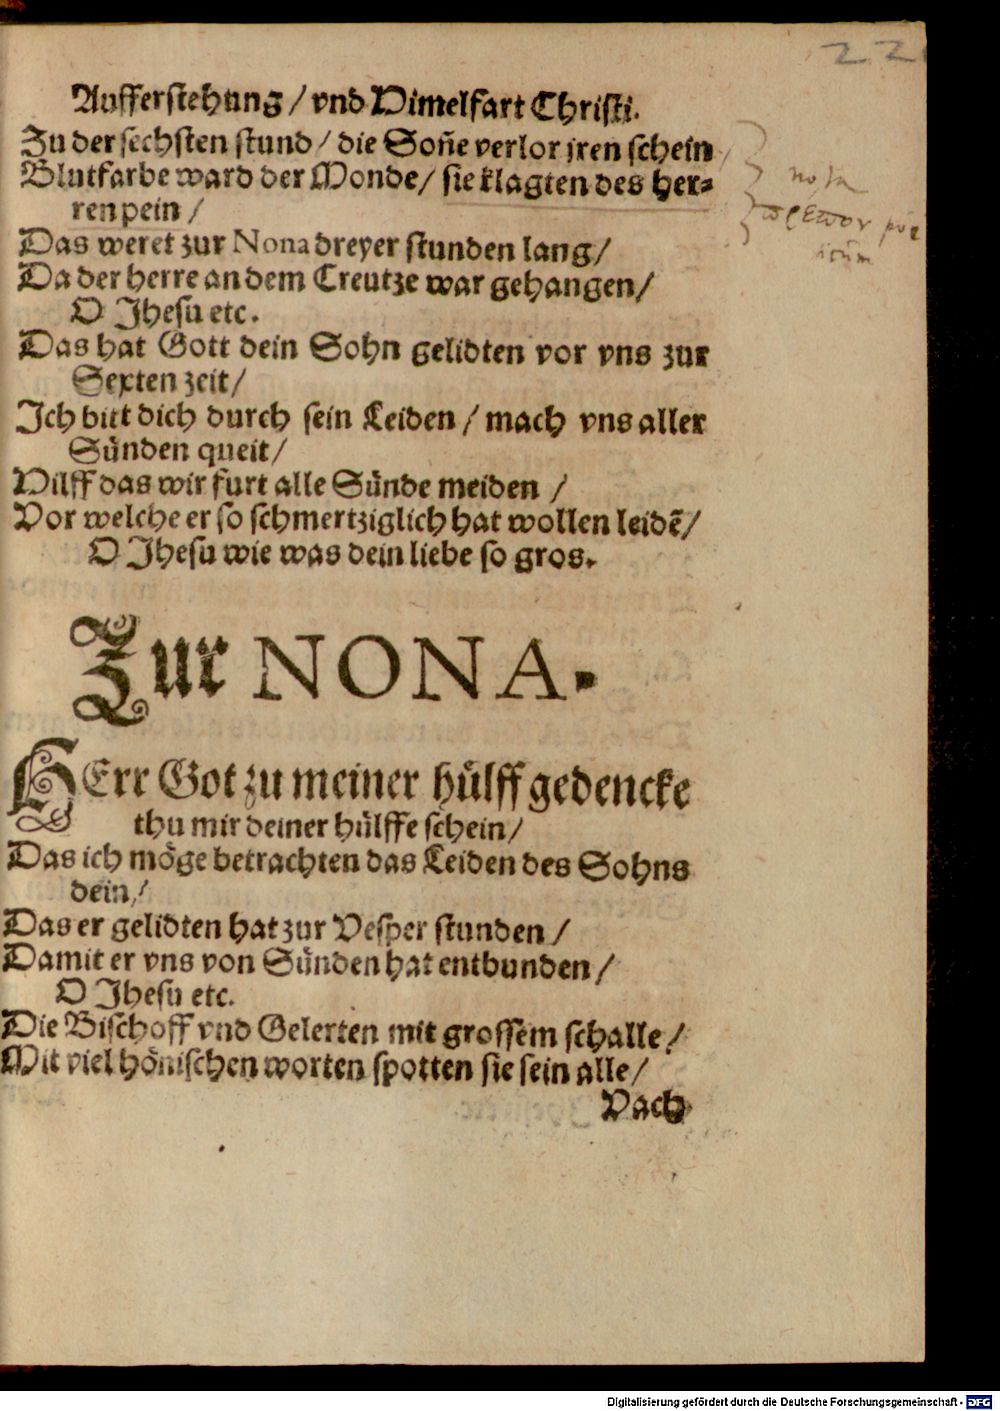 Aufferstehung / vnd Himelfart Christi.
Zu der sechsten stund / die Soñe verlor jren schein
Blutfarbe ward der Monde / sie klagten des her⸗
ren pein /
Das weret zur Nona dreyer stunden lang /
Da der herre an dem Creutze war gehangen /
O Jhesu etc.
Das hat Gott dein Sohn gelidten vor vns zur
Sexten zeit /
Ich bitt dich durch sein Leiden / mach vns aller
Sünden queit /
Hilff das wir furt alle Sünde meiden /
Vor welche er so schmertziglich hat wollen leidē /
O Jhesu wie was dein liebe so gros.
Zur NONA.
HErr Got zu meiner hülff gedencke
thu mir deiner hülffe schein /
Das ich möge betrachten das Leiden des Sohns
dein /
Das er gelidten hat zur Vesper stunden /
Damit er vns von Sünden hat entbunden /
O Jhesu etc.
Die Bischoff vnd Gelerten mit grossem schalle /
Mit viel hönischen worten spotten sie sein alle /
Nach
nota
Digitalisierung gefördert durch die Deutsche Forschungsgemeinschaft - DFG